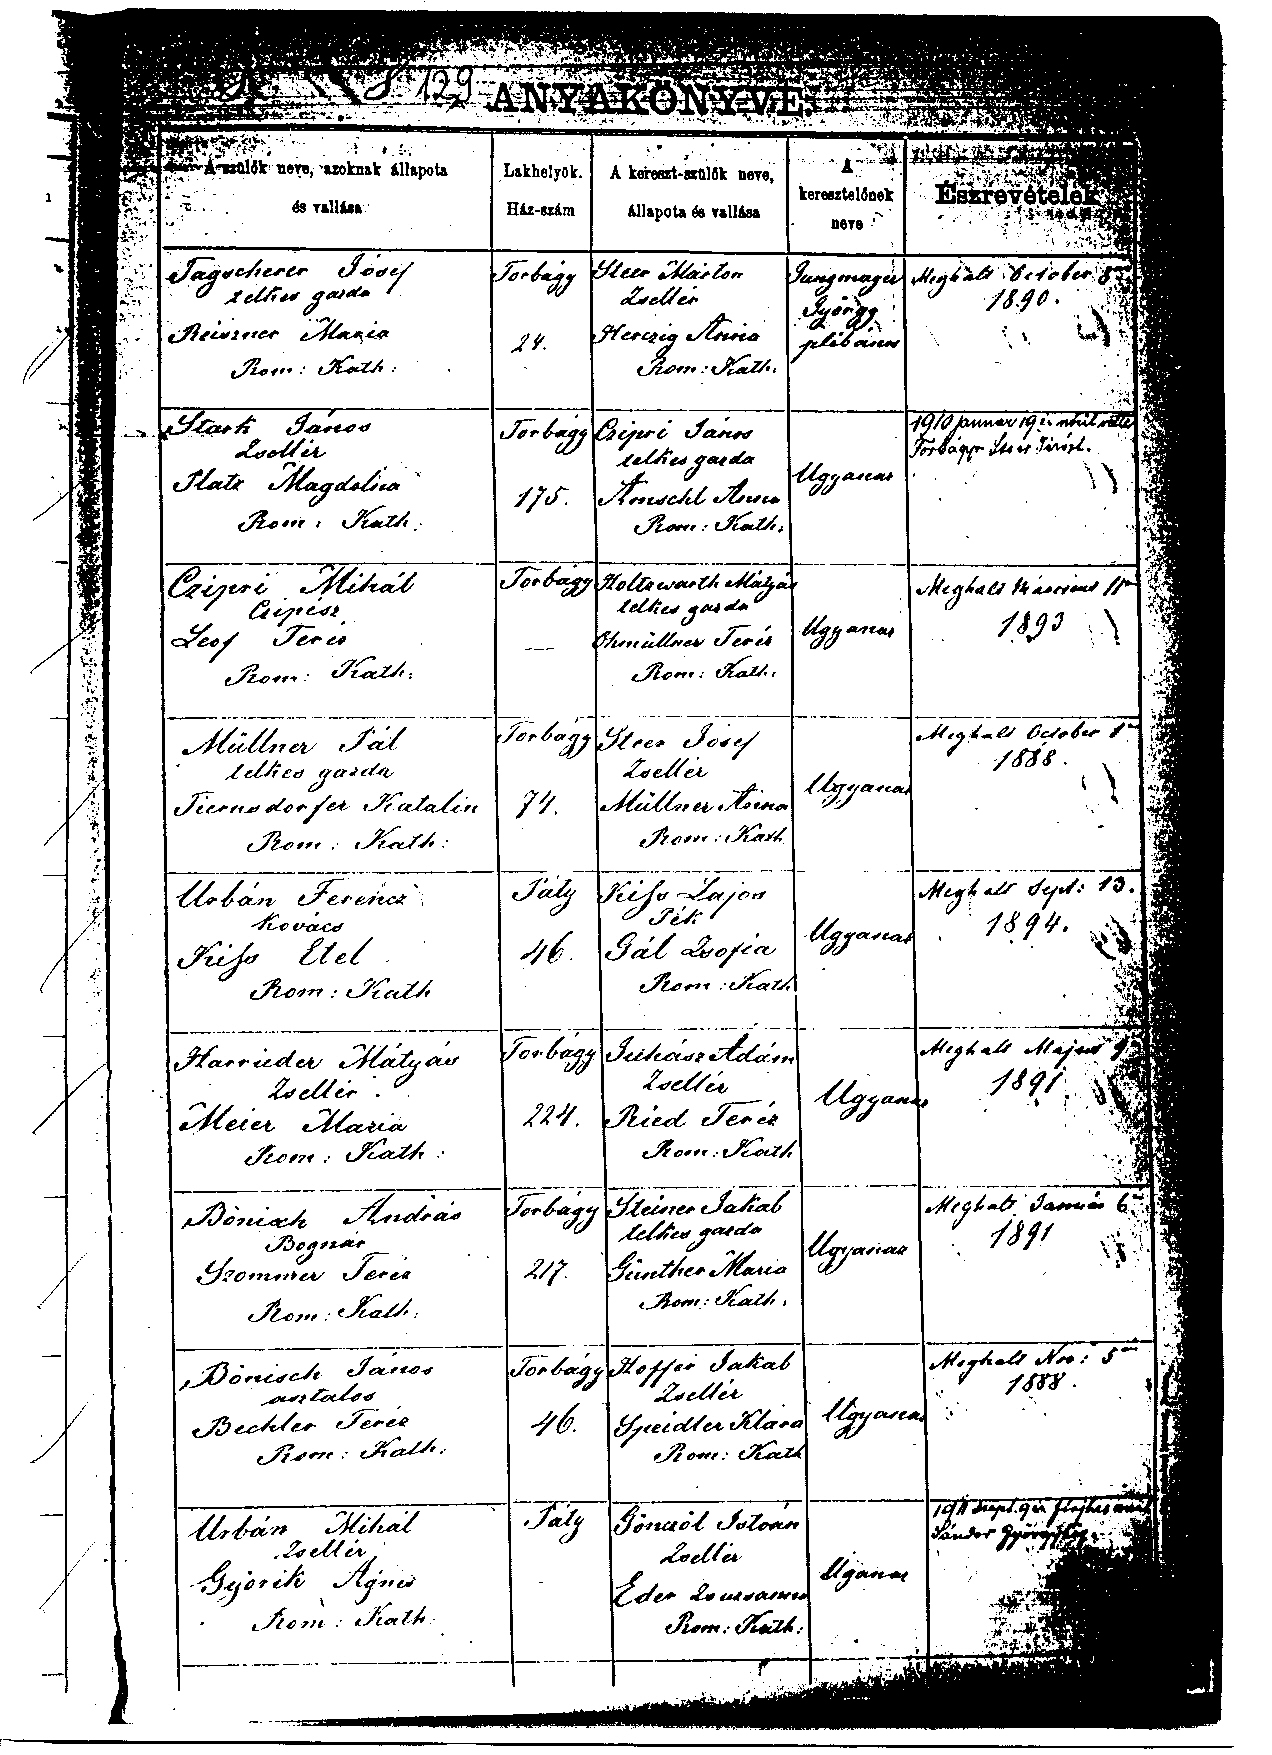 129
ANYAKÖNYVE.
A szülők neve, azoknak állapota
és vallása
Lakhelyök.
Ház-szám
A kereszt-szülők neve,
állapota és vallása
A
keresztelőnek
neve
Észrevételek
Tagscherer Jósef
telkes gazda
Reiszner Maria
Rom: Kath:
Torbágy
24.
Steer Márton
Zsellér
Herczig Anna
Rom: Kath.
Jungmayer
György
plébános
Meghalt October 8
1890.
Stark János
Zsellér
Platz Magdolna
Rom: Kath:
Torbágy
175.
Czipri János
telkes gazda
Amschl Anna
Rom: Kath.
Ugyanaz
1910 január 19 én nőül vette
Torbágyon Steer Terézt.
Czipri Mihál
Csepész
Leof Teréz
Rom: Kath:
Torbágy
—
Holtzwarth Mátyás
telkes gazda
Ohmüllner Teréz
Rom: Kath.
Ugyanaz
Meghalt Március 11
1893
Müllner Pál
telkes gazda
Tiernsdorfer Katalin
Rom: Kath:
Torbágy
74.
Steer Jósef
Zsellér
Müllner Anna
Rom: Kath
Ugyanaz
Meghalt October 1
1888.
Urbán Ferencz
Kovács
Kiss Etel
Rom: Kath
Páty
46.
Kiss Lajos
Pék
Gál Zsofia
Rom: Kath
Ugyanaz
Meghalt Sept: 13.
1894.
Harrieder Mátyás
Zsellér
Meier Maria
Rom: Kath:
Torbágy
224.
Juhász Adám
Zsellér
Ried Teréz
Rom: Kath
Ugyanaz
Meghalt Majus 9
1891
Bönisch András
Bognár
Szommer Teréz
Rom: Kath:
Torbágy
217.
Steiner Jakab
telkes gazda
Günther Maria
Rom: Kath.
Ugyanaz
Meghalt Január 6
1891
Bönisch János
asztalos
Bechler Teréz
Rom: Kath:
Torbágy
46.
Hoffer Jakab
Zsellér
Speidler Klára
Rom: Kath
Ugyanaz
Meghalt Nov: 5
1888.
Urbán Mihál
Zsellér
Györik Agnes
Rom: Kath:
Páty
Gönczöl István
Zsellér
Eder Zsuzsanna
Rom: Kath:
Uganaz
1911 szept. 9 én
Sándor